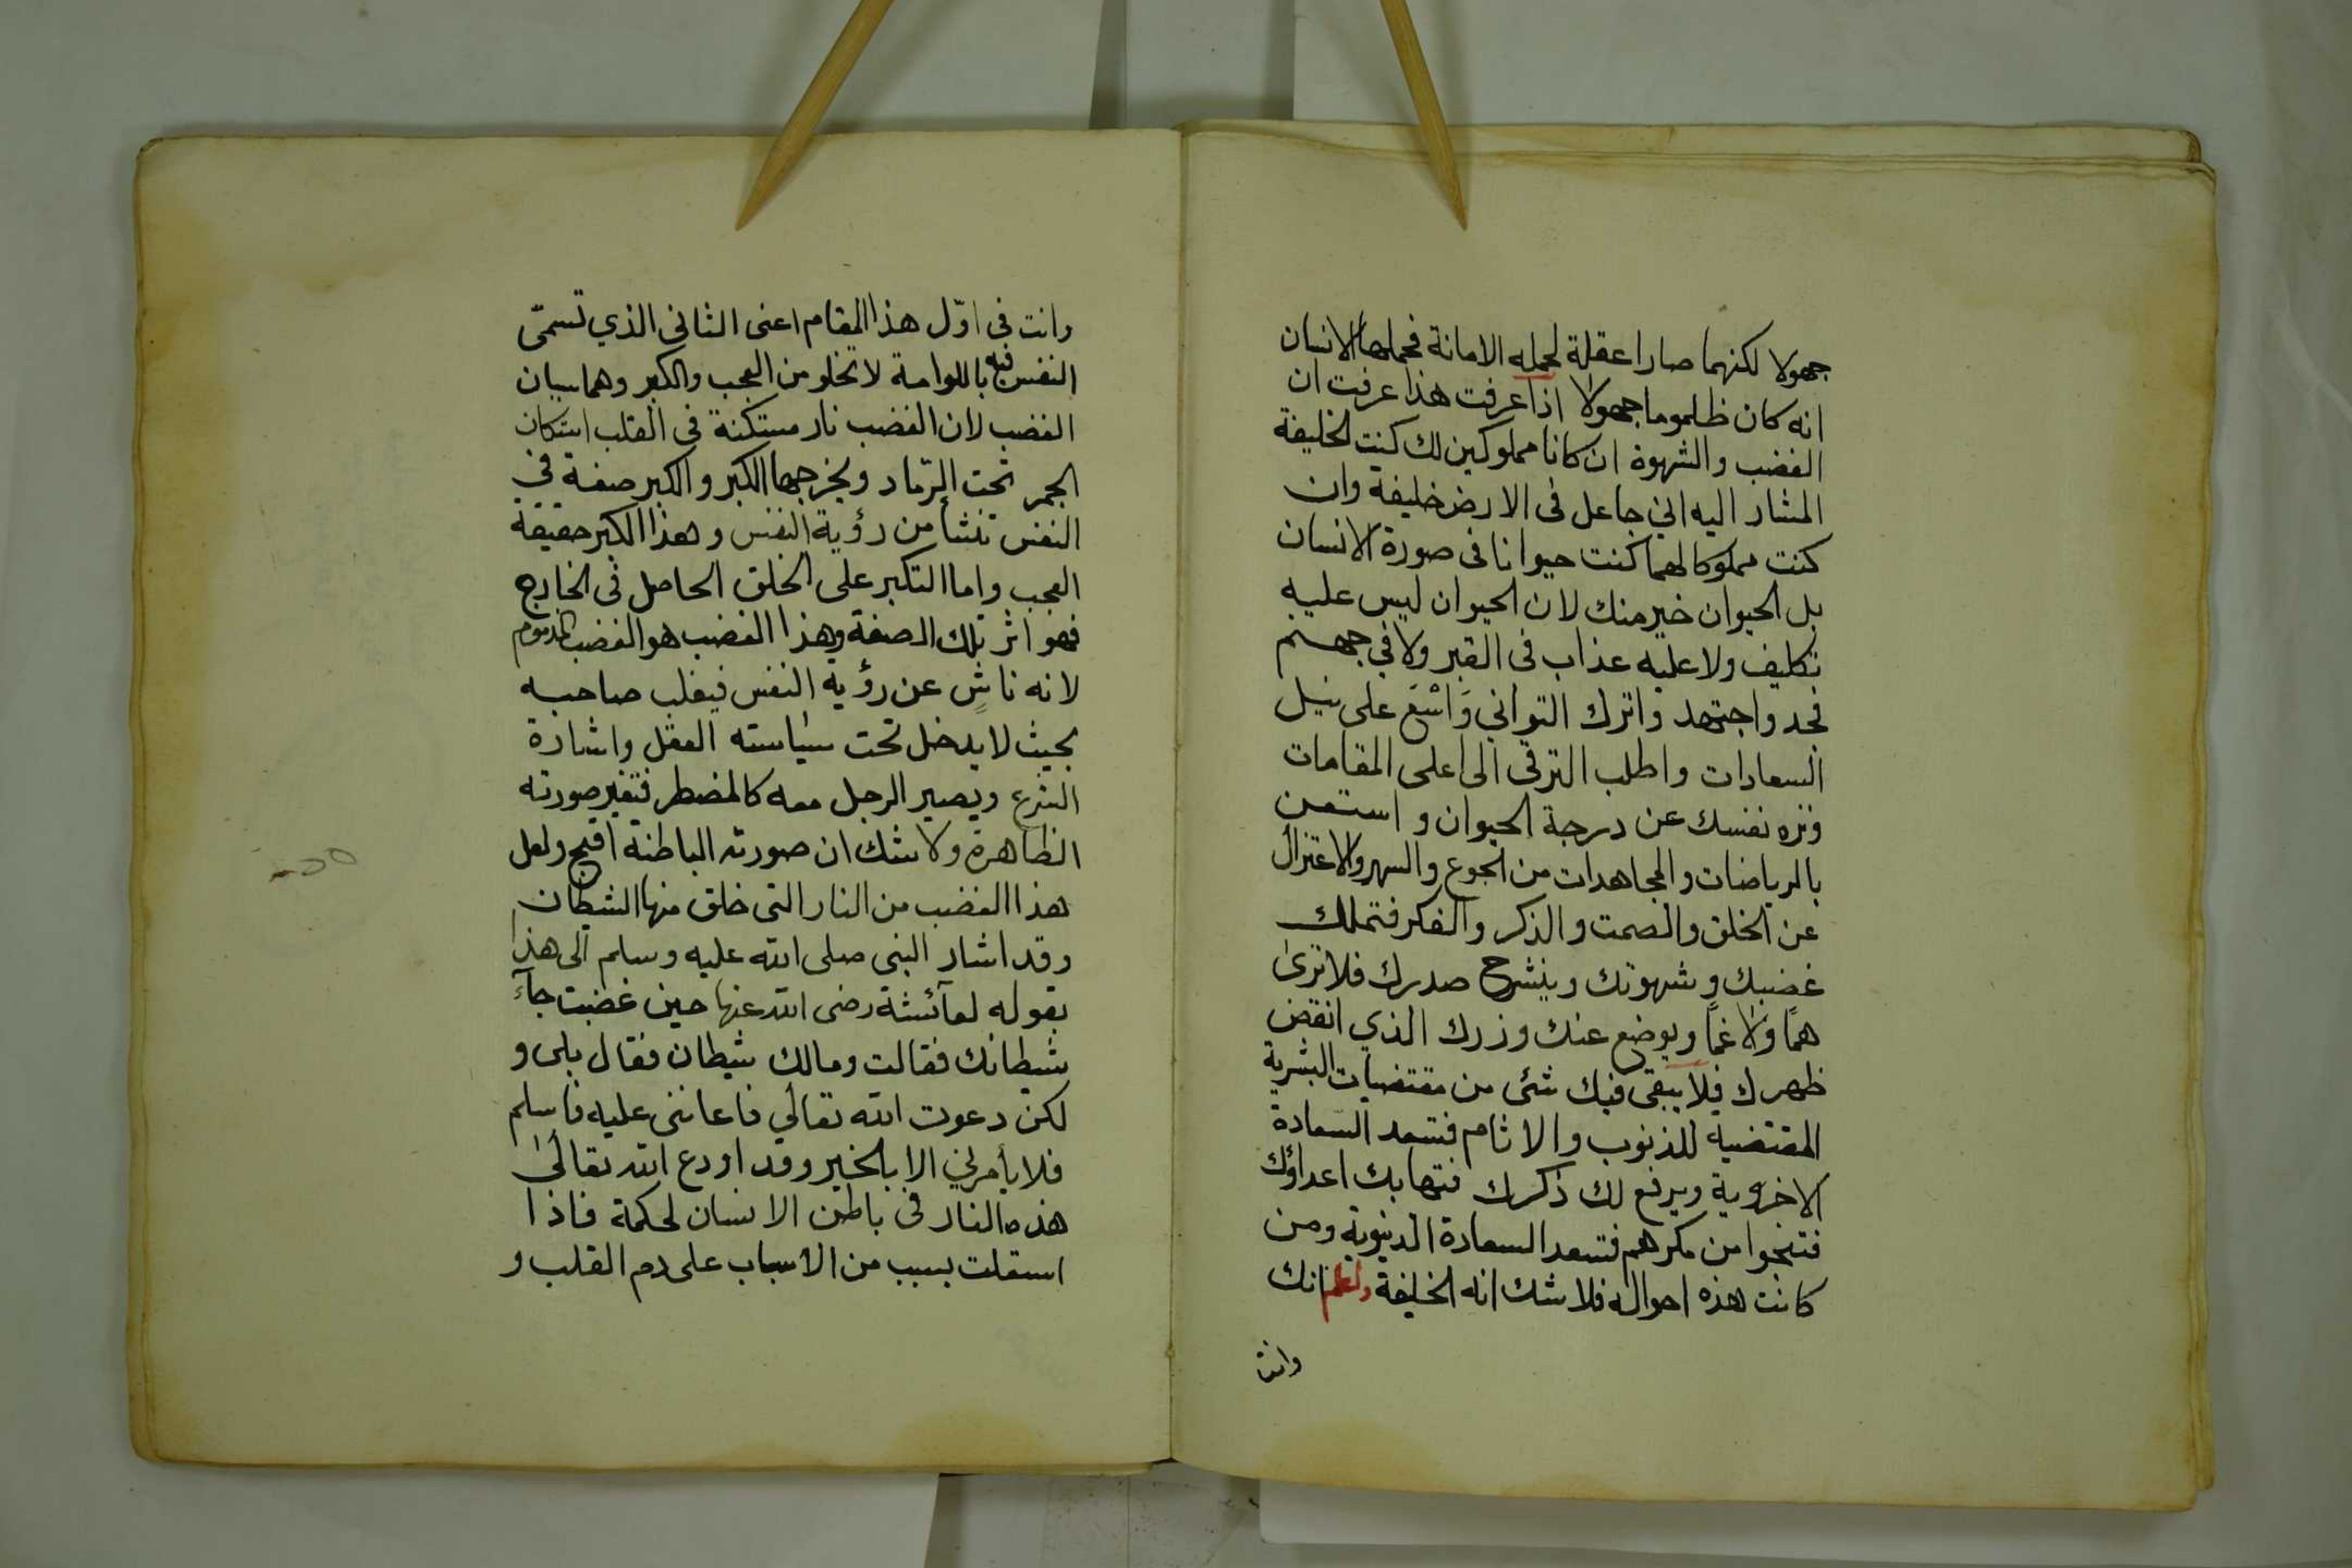 جهولا لكنهما صارا عقلة لحمله الامانة فحملها الانسان
انه كان ظلموما جهولا اذا عرفت هذا عرفت ان
الغضب والشهوة ان كانا مملوكين لك كنت الخليفة
المشار اليه اني جاعل فى الارض خليفة وان
كنت مملوكا لهما كنت حيوانا فى صورة الانسان
بل الحيوان خير منك لان الحيوان ليس عليه
تكليف ولا عليه عذاب فى القبر ولا في جهنم
فجد واجتهد واترك التواني وَاسْعَ على نيل
السعادات واطلب الترقى الى اعلى المقامات
ونزه نفسك عن درجة الحيوان واستعن
بالرياضات والمجاهدات من الجوع والسهر والاعتزال
عن الخلق والصمت والذكر والفكر فتملك
غضبك وشهوتك وينشرح صدرك فلا ترى
همًا ولا غمًا ويوضع عنك وزرك الذي انقض
ظهرك فلا يبقى فيك شئ من مقتضيات البشرية
المقتضية للذنوب والاثام فتسعد السعادة
الاخروية ويرفع لك ذكرك فتهابك اعداؤك
فتنجوا من مكرهم فتسعد السعادة الدنيوية ومن
كانت هذه احواله فلا شك انه الخليفة ولعلم انك
وانت
وانت فى اوّل هذا المقام اعنى الثانى الذي تسمّى
النفس فيه باللوامة لا تخلو من العجب والكبر وهما سببان
الغضب لان الغضب نار مستكنة فى القلب استكان
الجمر تحت الرّماد ويخرجها الكبر والكبر صفة في
النفس تنشأ من رؤية النفس وهذا الكبر حقيقة
العجب واما التكبر على الخلق الحاصل فى الخارج
فهو اثر تلك الصفة وهذا الغضب هو الغضب المذموم
لانه ناشٍ عن رؤية النفس فيغلب صاحبه
بحيث لا يدخل تحت سياسته العقل واشارة
الشرع ويصير الرجل معه كالمضطر فتغير صورته
الظاهرة ولا شك ان صورته الباطنة اقبح ولعل
هذا الغضب من النار التى خلق منها الشيطان
وقد اشار النبى صلى الله عليه وسلم الى هذا
بقوله لعآئشة رضى الله عنها حين غضبت جآء
شيطانك فقالت ومالك شيطان فقال بلى و
لكن دعوت الله تعالي فاعاننى عليه فأسلم
فلا يأمرني الا بالخير وقد اودع الله تعالى
هذه النار فى باطن الانسان لحكمة فاذا
استقلت بسبب من الاسباب على دم القلب و